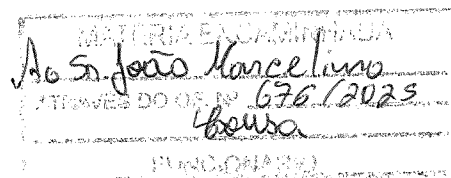 MATÉRIA ENCAMINHADA
Ao Sr. João Marcelino
ATRAVÉS DO OF. Nº 676/2025
Sousa
FUNCIONÁRIO